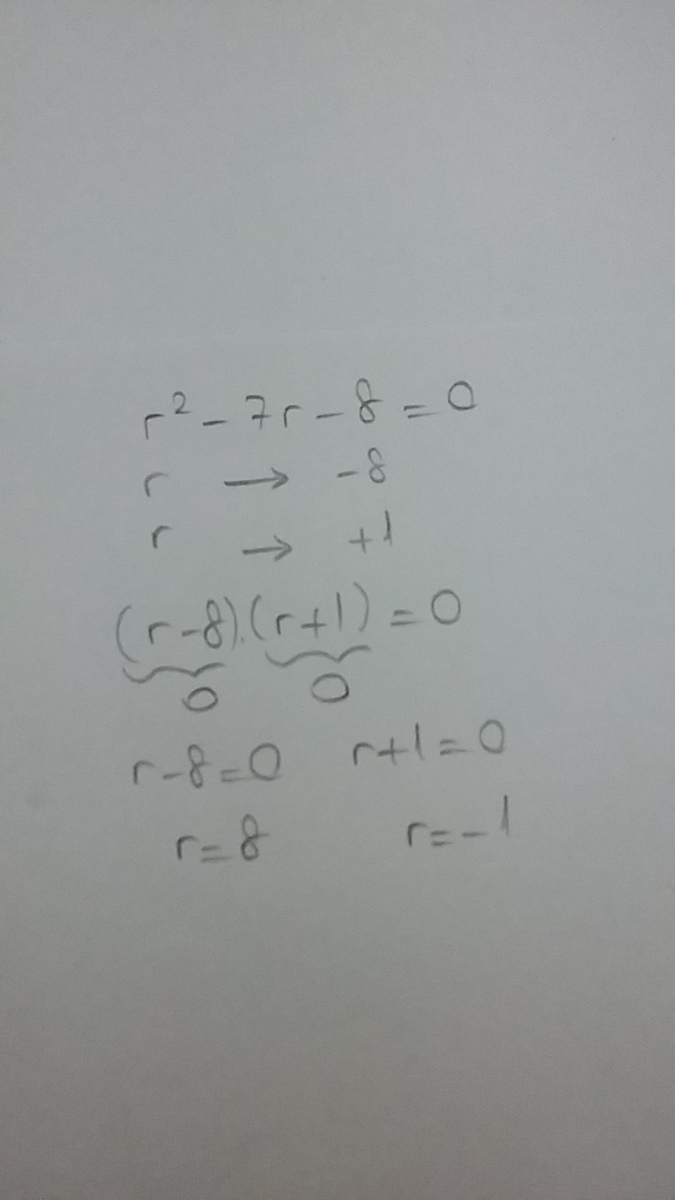 r² - 7r - 8 = 0
r → -8
r → +1
(r-8).(r+1) = 0
0 0
r-8=0 r+1=0
r=8 r=-1